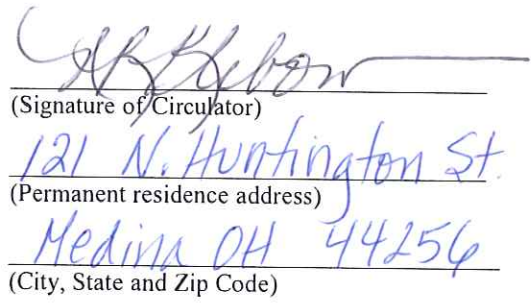 (Signature of Circulator)
121 N. Huntington St.
(Permanent residence address)
Medina OH 44256
(City, State and Zip Code)